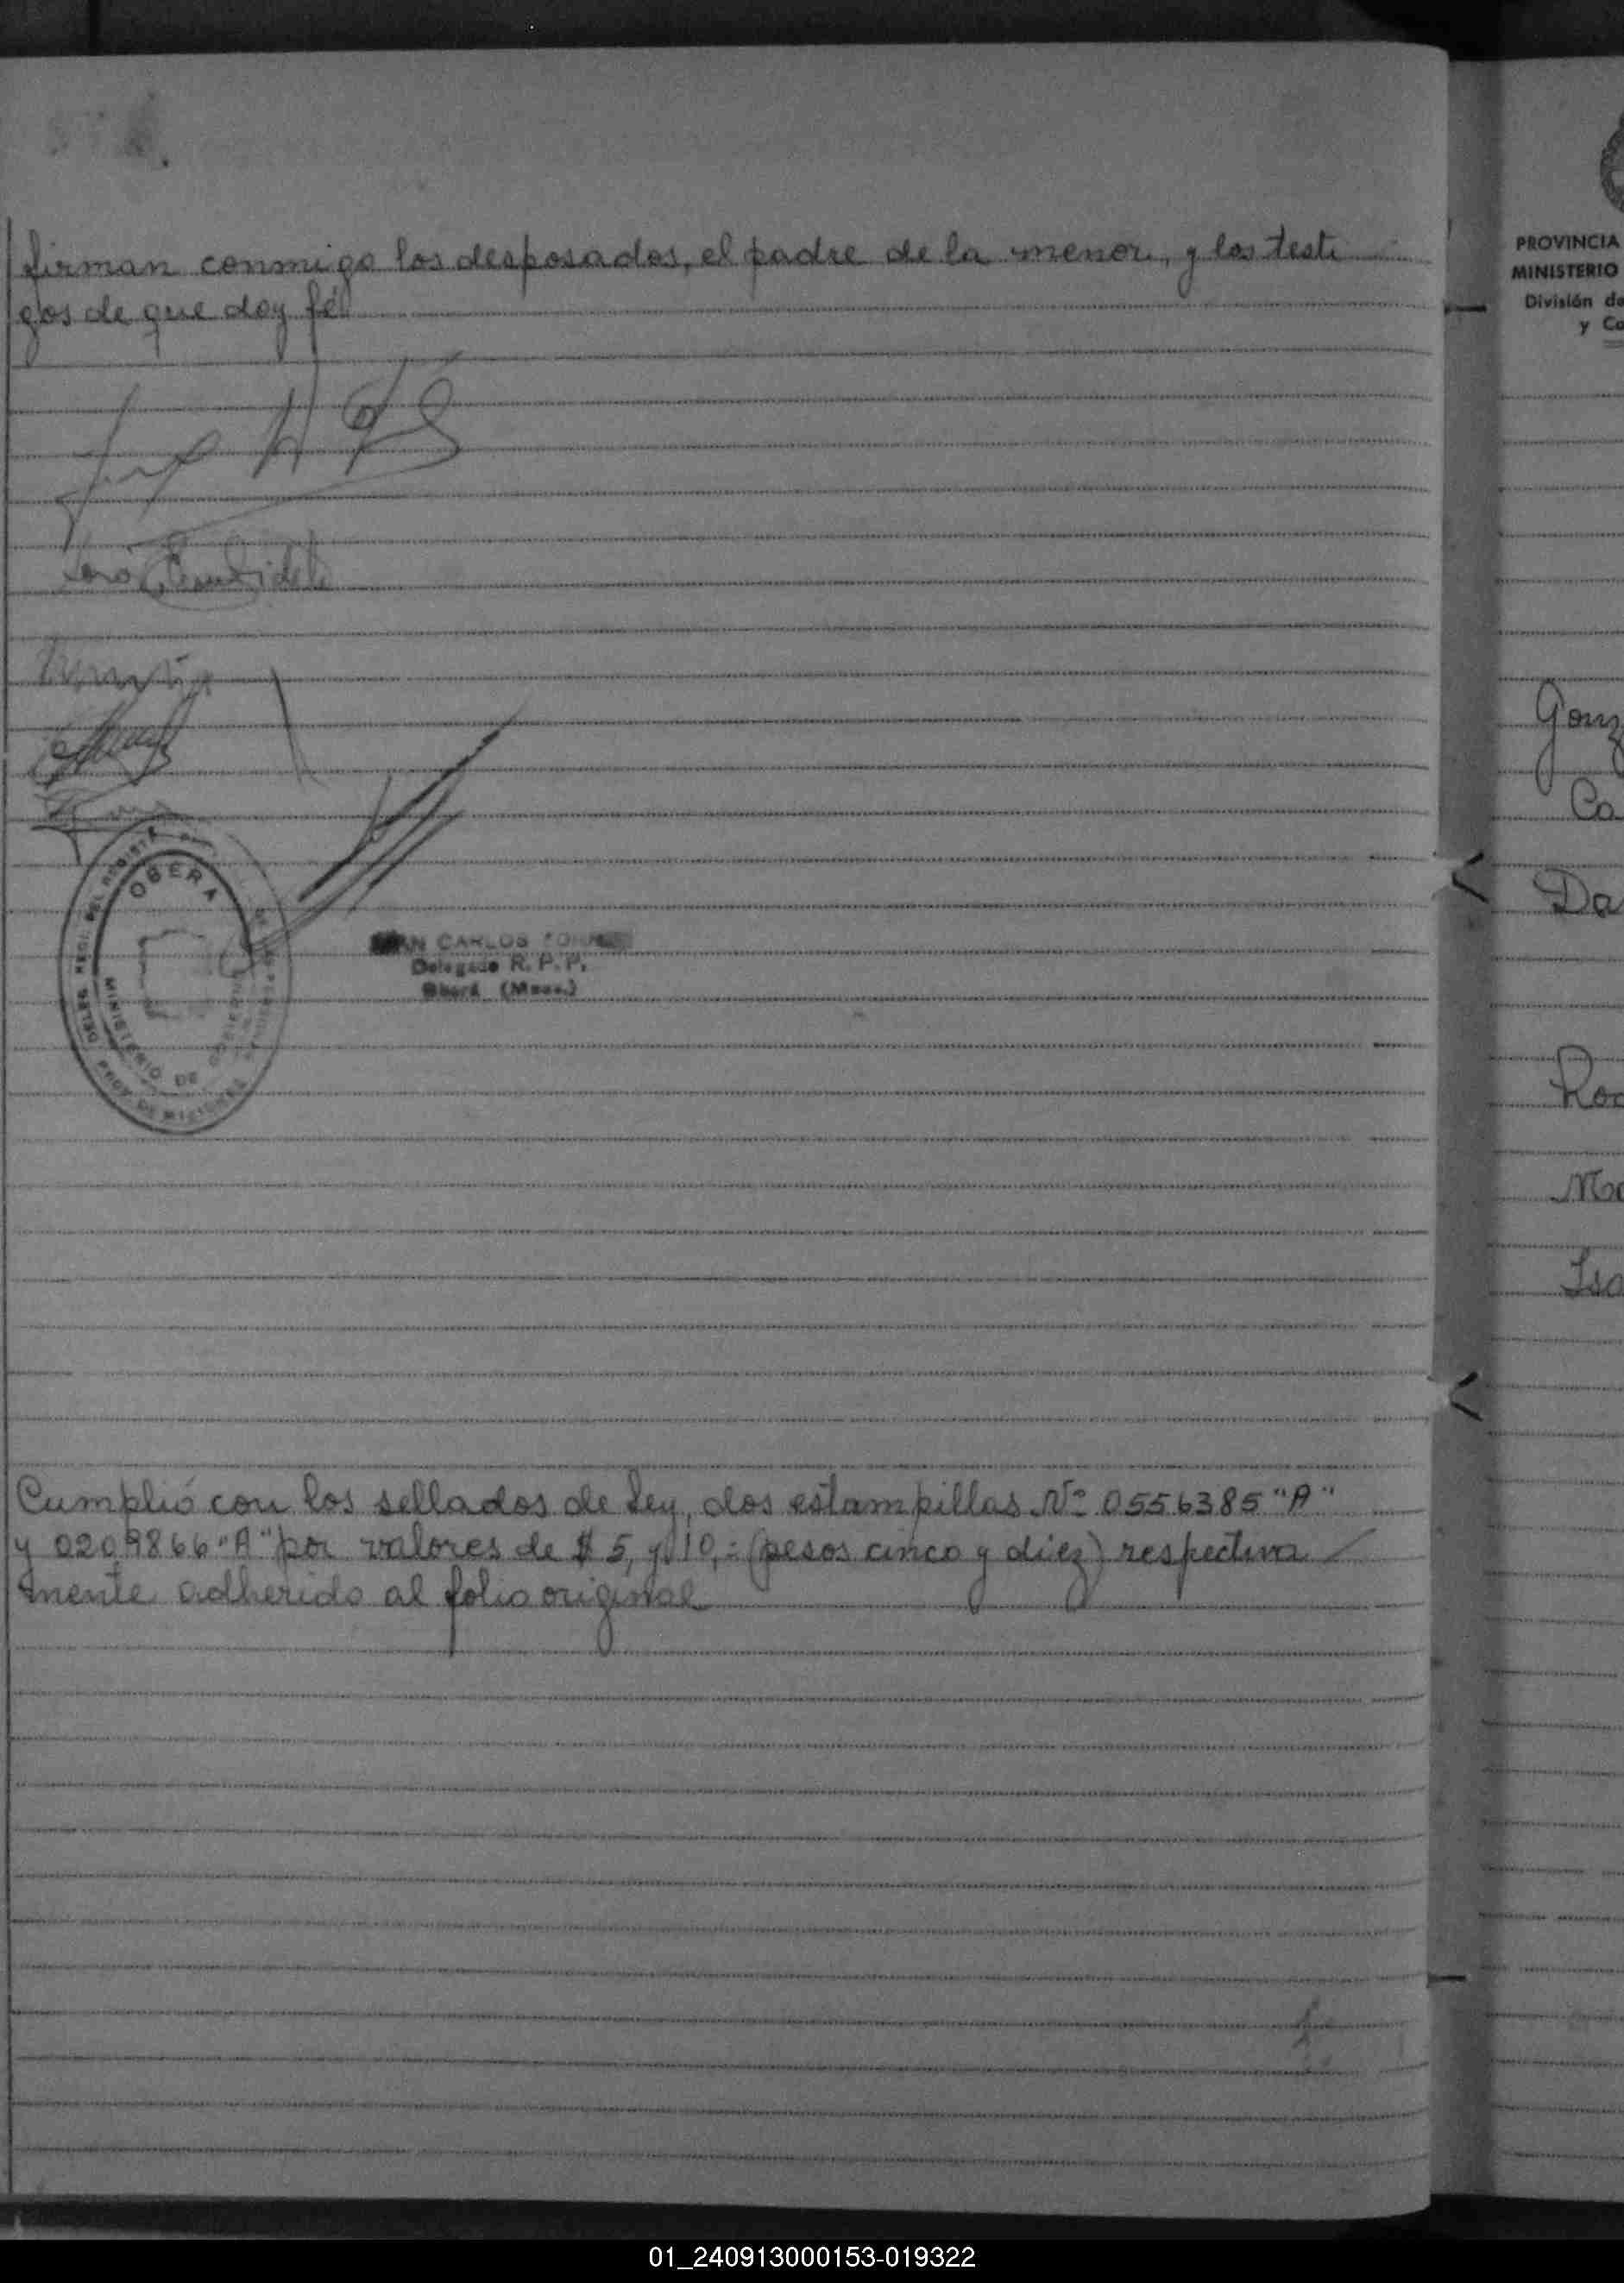 firman conmigo los desposados, el padre de la menor, y los testi
gos de que doy fé
OBERA
MINISTERIO DE GOBIERNO
PROV. DE MISIONES
CARLOS
Delegado R. P. P.
Oberá (Mnes.)
Cumplió con los sellados de Ley, dos estampillas Nº 0556385 "A"
y 0209866 "A" por valores de $ 5, y 10,= (pesos cinco y diez) respectiva
mente adherido al folio original
PROVINCIA
MINISTERIO
División de
y Co
Gonz
Co
Da
Ro
Ma
Isa
01_240913000153-019322